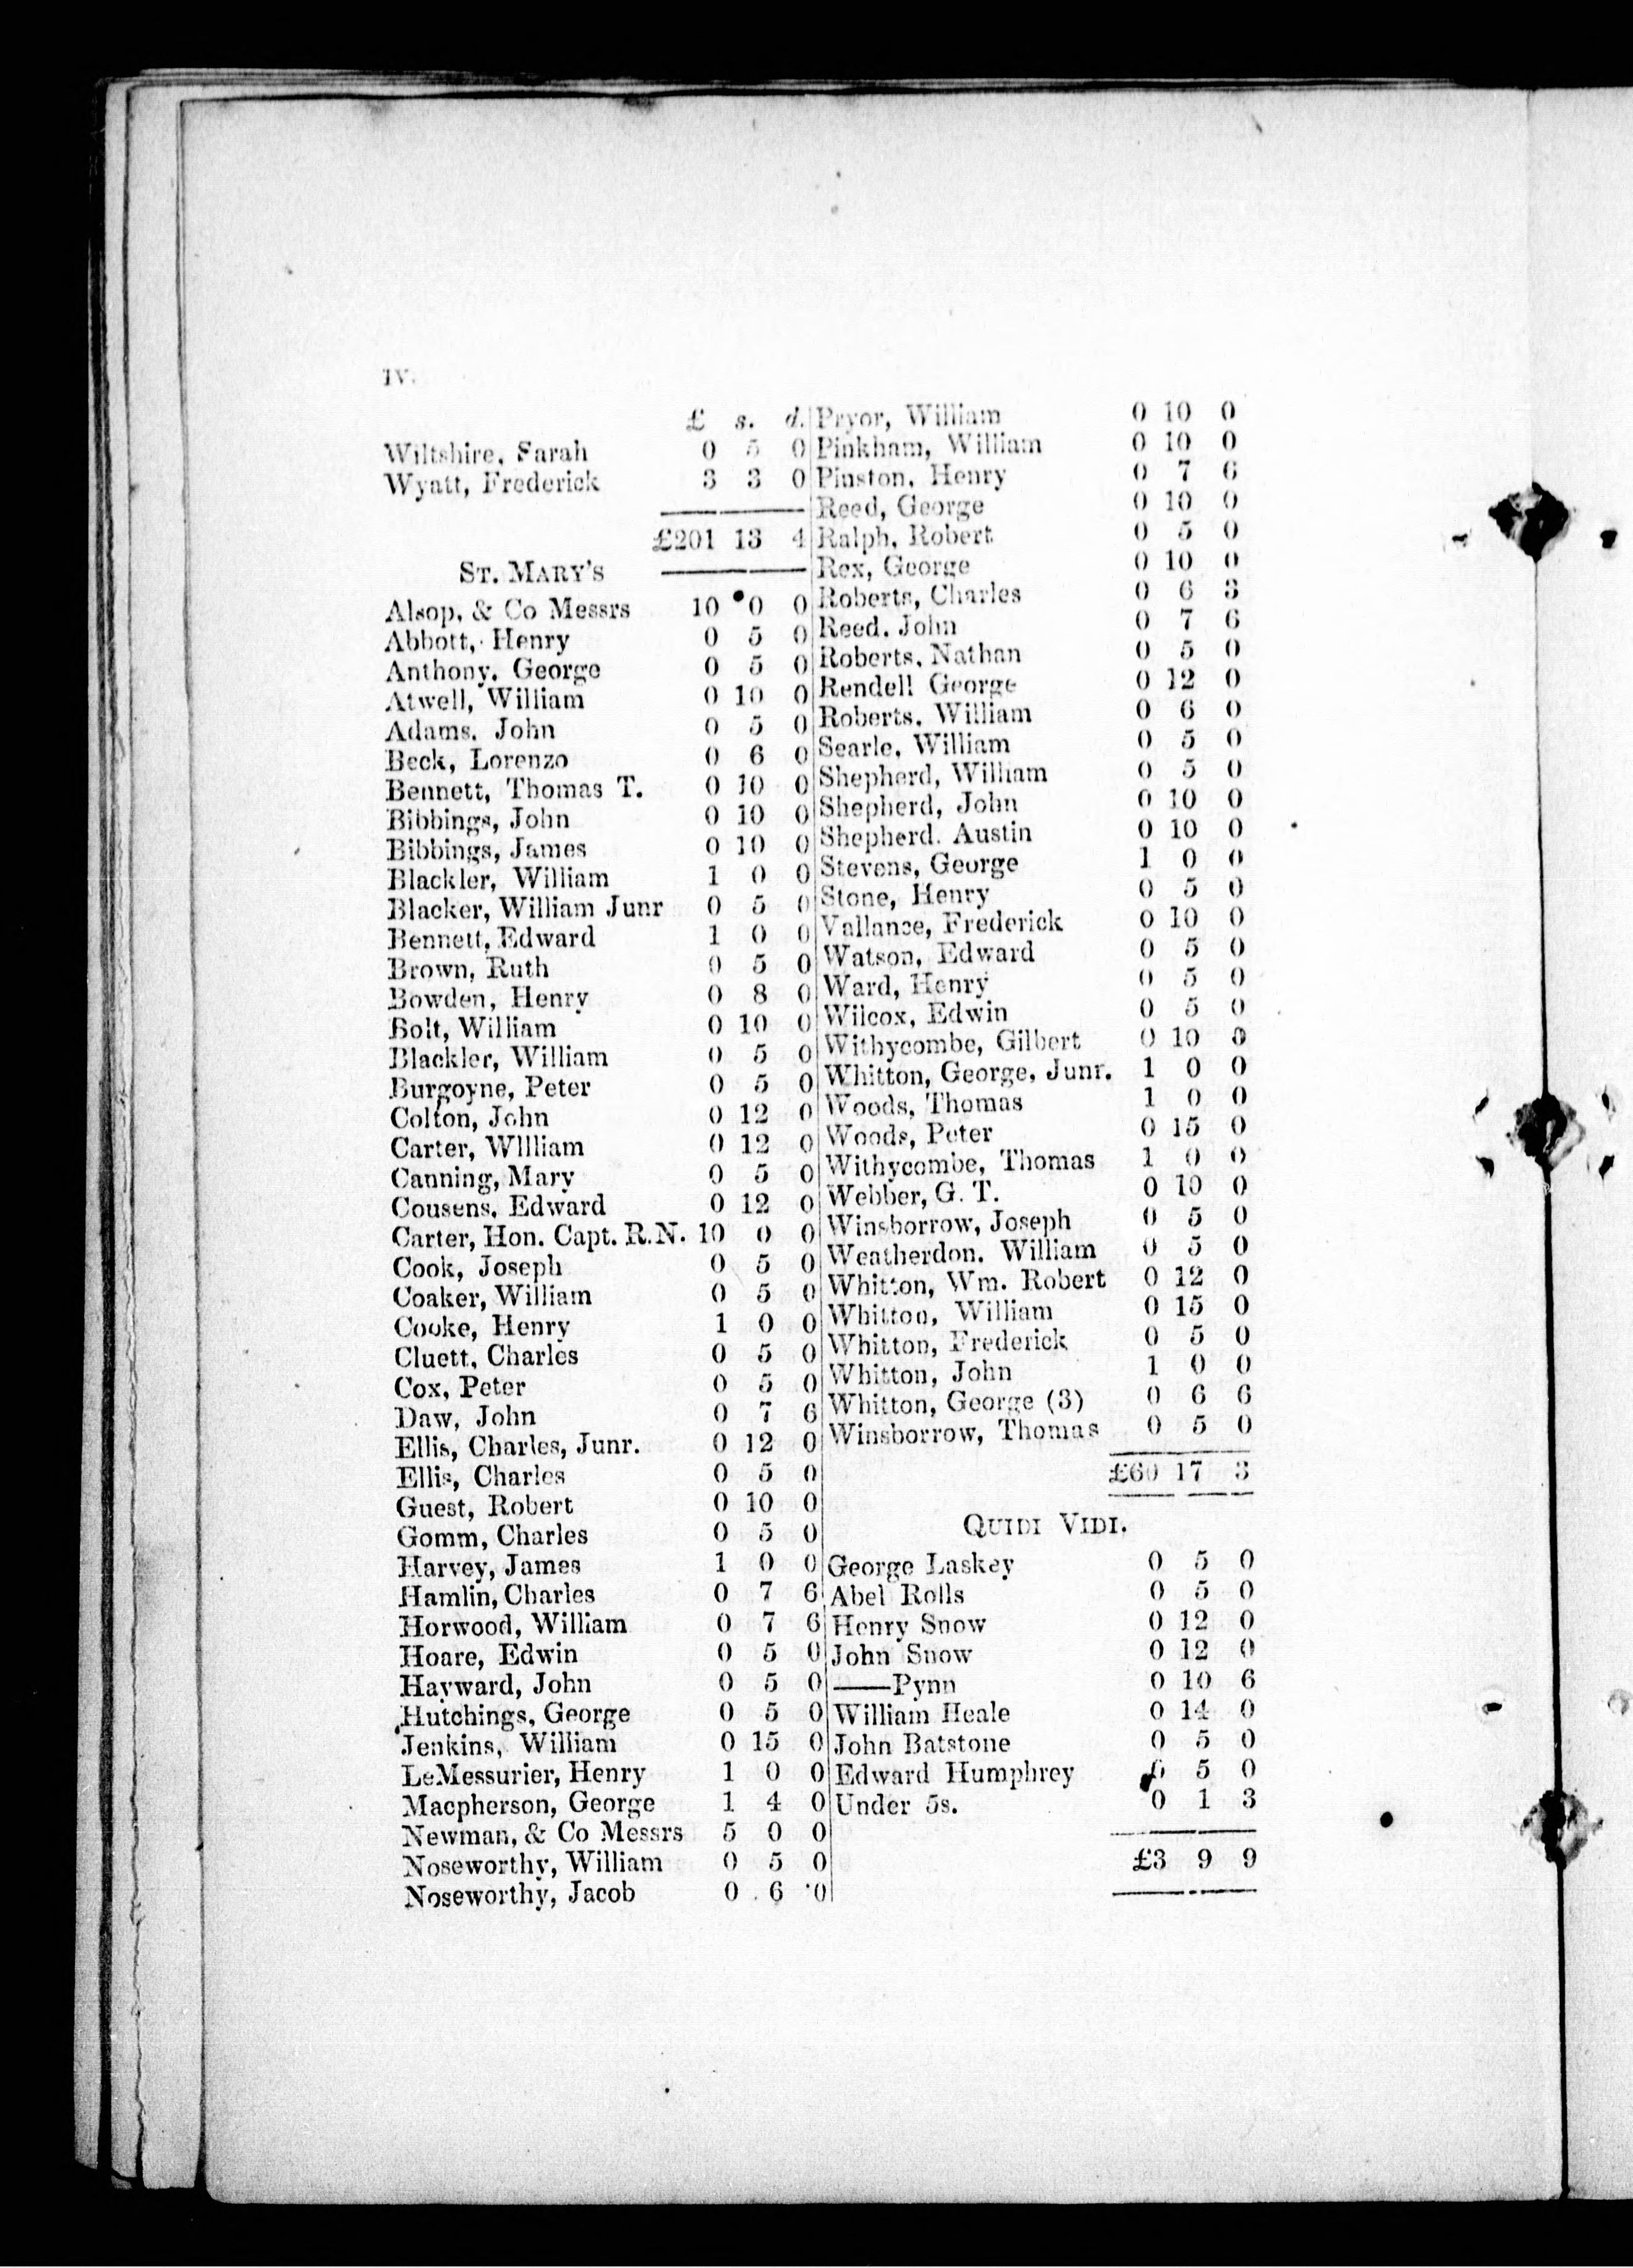 IV.
£ s. d.
Wiltshire, Sarah 0 5 0
Wyatt, Frederick 3 3 0
£201 13 4
ST. MARY'S
Alsop, & Co Messrs 10 0 0
Abbott, Henry 0 5 0
Anthony, George 0 5 0
Atwell, William 0 10 0
Adams, John 0 5 0
Beck, Lorenzo 0 6 0
Bennett, Thomas T. 0 10 0
Bibbings, John 0 10 0
Bibbings, James 0 10 0
Blackler, William 1 0 0
Blacker, William Junr 0 5 0
Bennett, Edward 1 0 0
Brown, Ruth 0 5 0
Bowden, Henry 0 8 0
Bolt, William 0 10 0
Blackler, William 0 5 0
Burgoyne, Peter 0 5 0
Colton, John 0 12 0
Carter, WIlliam 0 12 0
Canning, Mary 0 5 0
Cousens, Edward 0 12 0
Carter, Hon. Capt. R.N. 10 0 0
Cook, Joseph 0 5 0
Coaker, William 0 5 0
Cooke, Henry 1 0 0
Cluett, Charles 0 5 0
Cox, Peter 0 5 0
Daw, John 0 7 6
Ellis, Charles, Junr. 0 12 0
Ellis, Charles 0 5 0
Guest, Robert 0 10 0
Gomm, Charles 0 5 0
Harvey, James 1 0 0
Hamlin, Charles 0 7 6
Horwood, William 0 7 6
Hoare, Edwin 0 5 0
Hayward, John 0 5 0
Hutchings, George 0 5 0
Jenkins, William 0 15 0
LeMessurier, Henry 1 0 0
Macpherson, George 1 4 0
Newman, & Co Messrs 5 0 0
Noseworthy, William 0 5 0
Noseworthy, Jacob 0 6 0
Pryor, William 0 10 0
Pinkham, William 0 10 0
Pinston, Henry 0 7 6
Reed, George 0 10 0
Ralph, Robert 0 5 0
Rex, George 0 10 0
Roberts, Charles 0 6 3
Reed. John 0 7 6
Roberts, Nathan 0 5 0
Rendell George 0 12 0
Roberts, William 0 6 0
Searle, William 0 5 0
Shepherd, William 0 5 0
Shepherd, John 0 10 0
Shepherd. Austin 0 10 0
Stevens, George 1 0 0
Stone, Henry 0 5 0
Vallance, Frederick 0 10 0
Watson, Edward 0 5 0
Ward, Henry 0 5 0
Wilcox, Edwin 0 5 0
Withycombe, Gilbert 0 10 0
Whitton, George, Junr. 1 0 0
Woods, Thomas 1 0 0
Woods, Peter 0 15 0
Withycombe, Thomas 1 0 0
Webber, G. T. 0 10 0
Winsborrow, Joseph 0 5 0
Weatherdon. William 0 5 0
Whitton, Wm. Robert 0 12 0
Whitton, William 0 15 0
Whitton, Frederick 0 5 0
Whitton, John 1 0 0
Whitton, George (3) 0 6 6
Winsborrow, Thomas 0 5 0
£60 17 3
QUIDI VIDI.
George Laskey 0 5 0
Abel Rolls 0 5 0
Henry Snow 0 12 0
John Snow 0 12 0
——Pynn 0 10 6
William Heale 0 14 0
John Batstone 0 5 0
Edward Humphrey 0 5 0
Under 5s. 0 1 3
£3 9 9